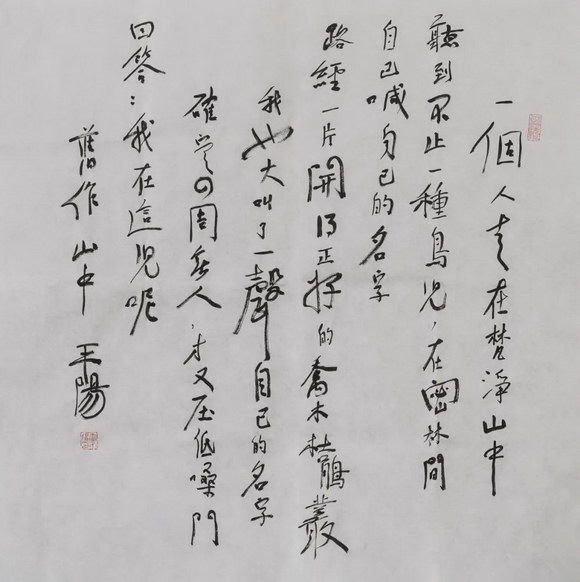 一個人走在梵淨山中
聽到不止一種鳥兒，在密林間
自己喊自己的名字
路經一片開得正好的喬木杜鵑叢
我也大叫了一聲自己的名字
確定四周無人，才又压低嗓門
回答：我在這兒呢
舊作山中 王陽